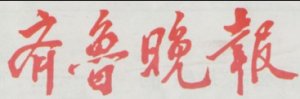 齐鲁晚報